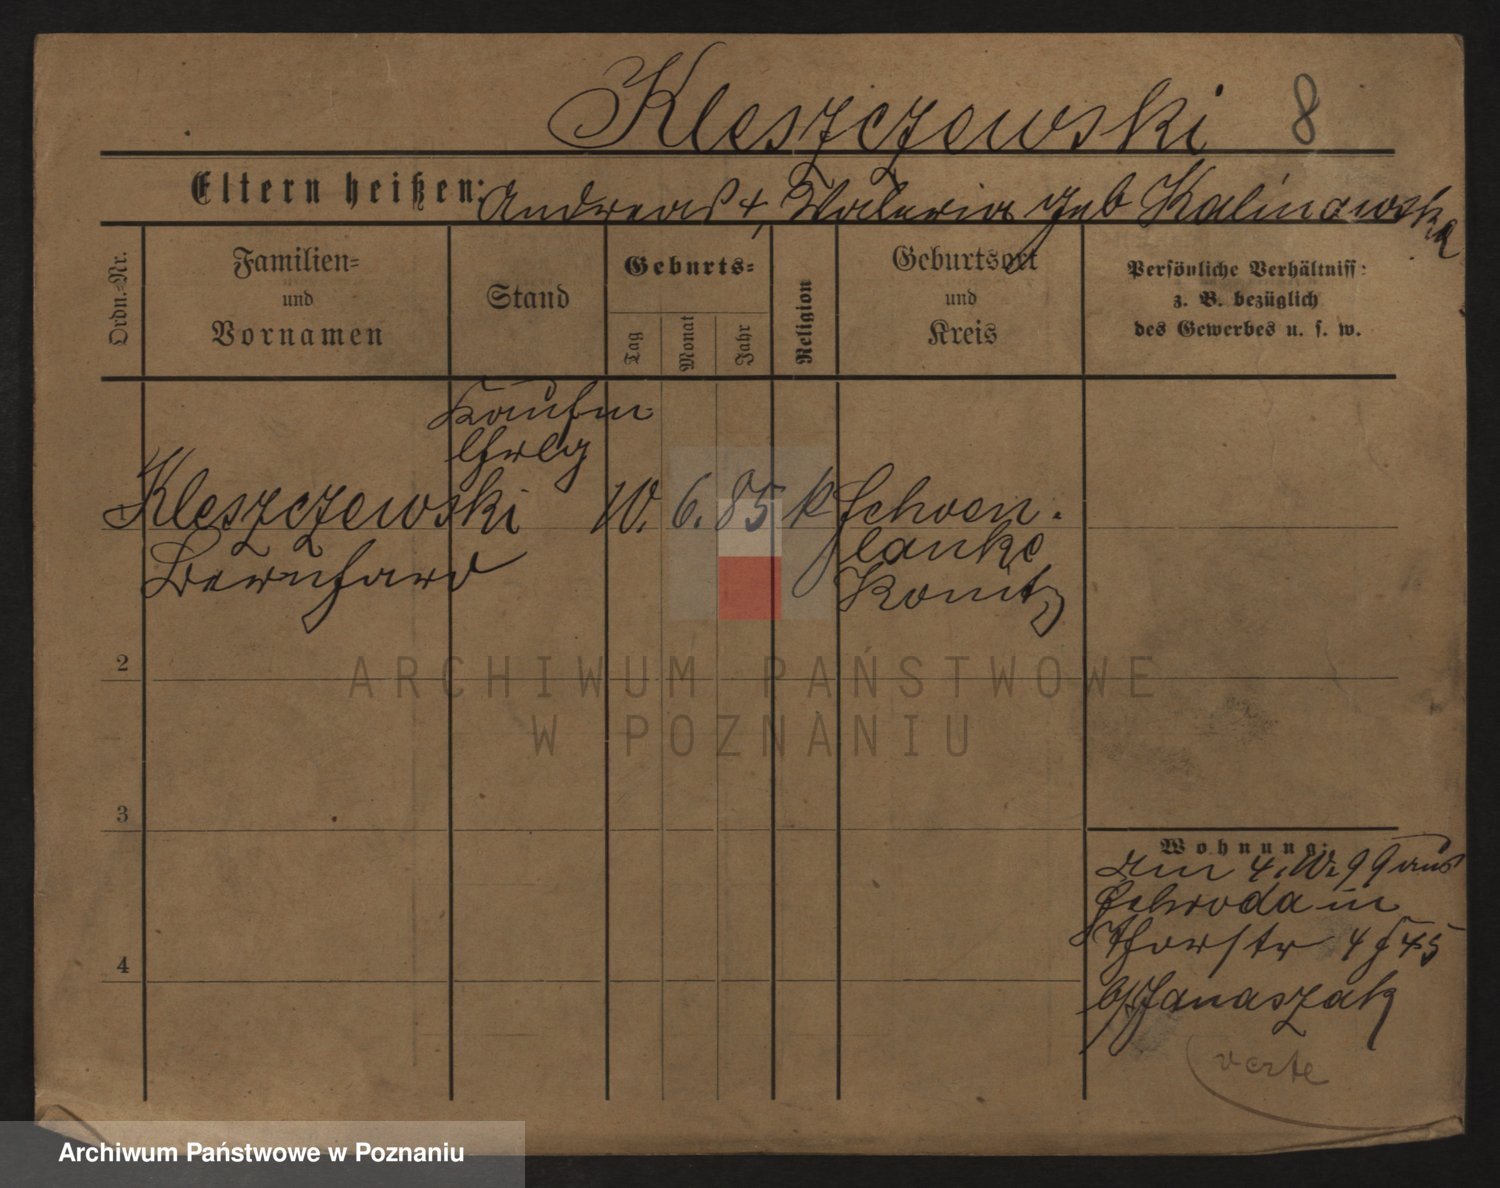 Kleszczewski 8
Eltern heißen: Andreas + Valeria geb Kalinowska
Ordn.-Nr.
Familien=
und
Vornamen
Stand
Geburts=
Tag
Monat
Jahr
Religion
Geburtsort
und
Kreis
Persönliche Verhältniss:
z. B. bezüglich
des Gewerbes u. s. w.
Kaufm
Lehrlg
Kleszczewski 10. 6. 85 k Schoen.
Bernhard lanke
Konitz
2
ARCHIWUM PAŃSTWOWE
W POZNANIU
3
Wohnung:
am 4. 10. 99 aus
Schroda in
Thorstr 45
b/Janaszak
4
verte
Archiwum Państwowe w Poznaniu